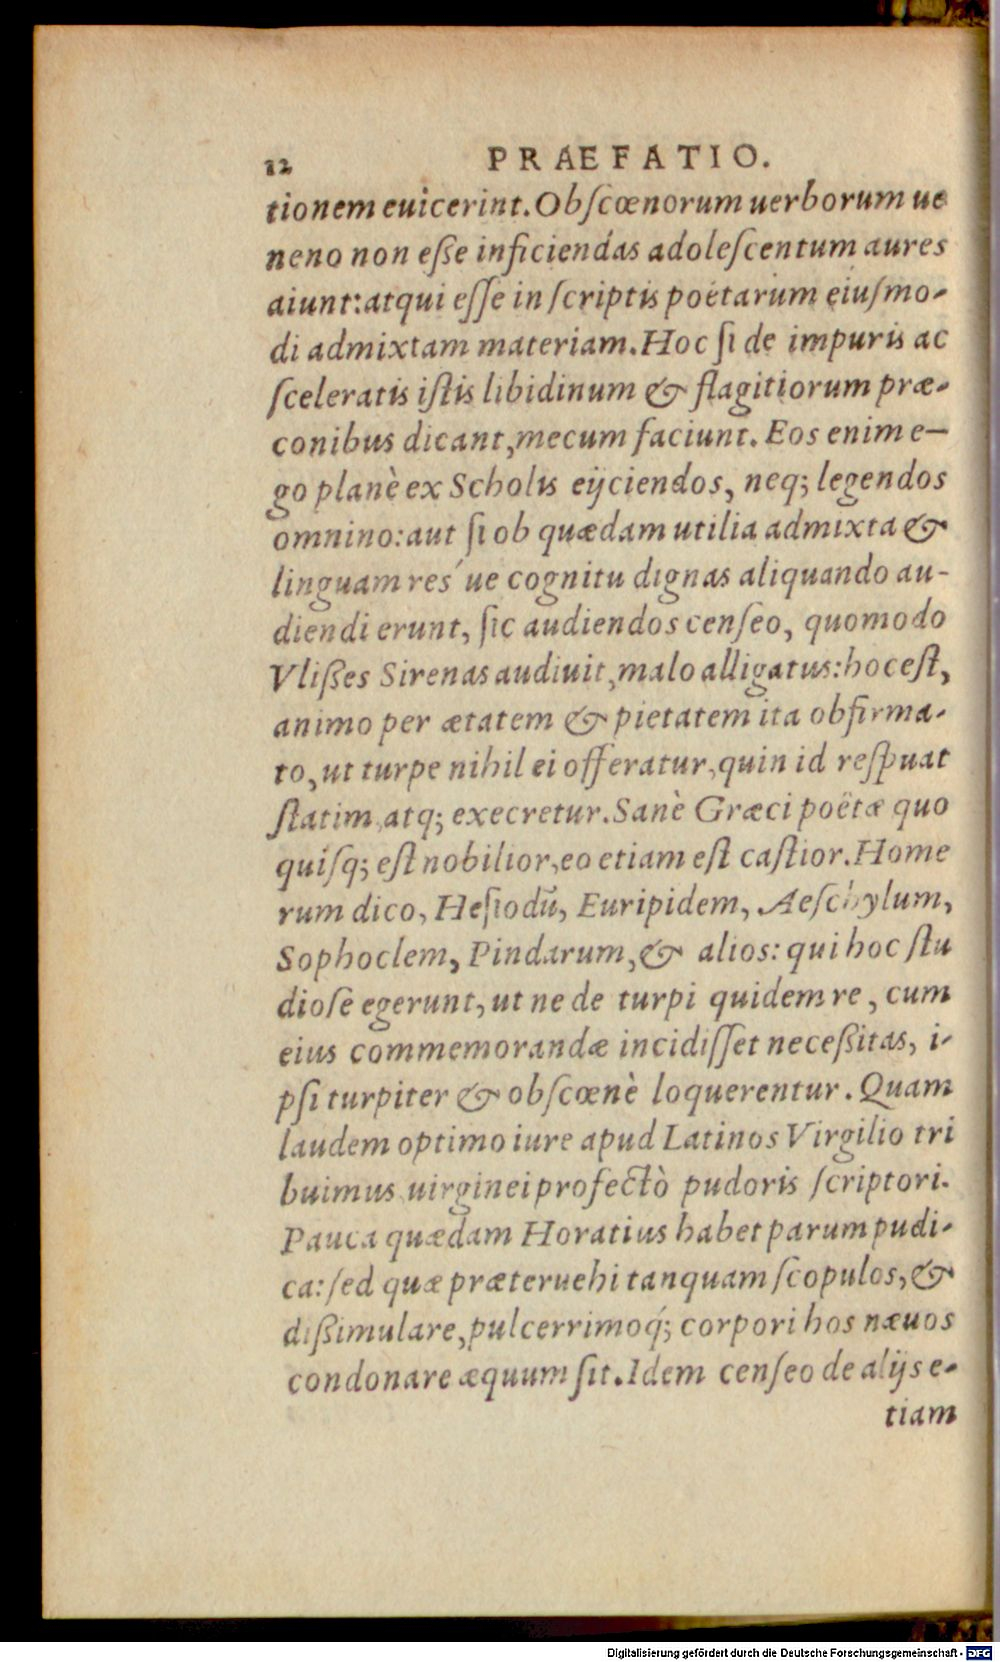 12 PRAEFATIO.
tionem euicerint. Obſcœnorum uerborum ue
neno non eſſe inficiendas adoleſcentum aures
aiunt: atqui eſſe in ſcriptis poëtarum eiuſmo-
di admixtam materiam. Hoc ſi de impuris ac
ſceleratis iſtis libidinum & flagitiorum præ-
conibus dicant, mecum faciunt. Eos enim e-
go planè ex Scholis eijciendos, neq; legendos
omnino: aut ſi ob quædam utilia admixta &
linguam res´ue cognitu dignas aliquando au-
diendi erunt, ſic audiendos cenſeo, quomodo
Vlißes Sirenas audiuit, malo alligatus: hoc eſt,
animo per ætatem & pietatem ita obfirma-
to, ut turpe nihil ei offeratur, quin id reſpuat
ſtatim, atq; execretur. Sanè Græci poëtæ quo
quiſq; eſt nobilior, eo etiam eſt caſtior. Home
rum dico, Heſiodū, Euripidem, Aeſchylum,
Sophoclem, Pindarum, & alios: qui hoc ſtu
dioſe egerunt, ut ne de turpi quidem re, cum
eius commemorandæ incidiſſet neceßitas, i-
pſi turpiter & obſcœnè loquerentur. Quam
laudem optimo iure apud Latinos Virgilio tri
buimus, uirginei profectò pudoris ſcriptori.
Pauca quædam Horatius habet parum pudi-
ca: ſed quæ præteruehi tanquam ſcopulos, &
dißimulare, pulcerrimoq́; corpori hos næuos
condonare æquum ſit. Idem cenſeo de alijs e-
tiam
Digitalisierung gefördert durch die Deutsche Forschungsgemeinschaft - DFG